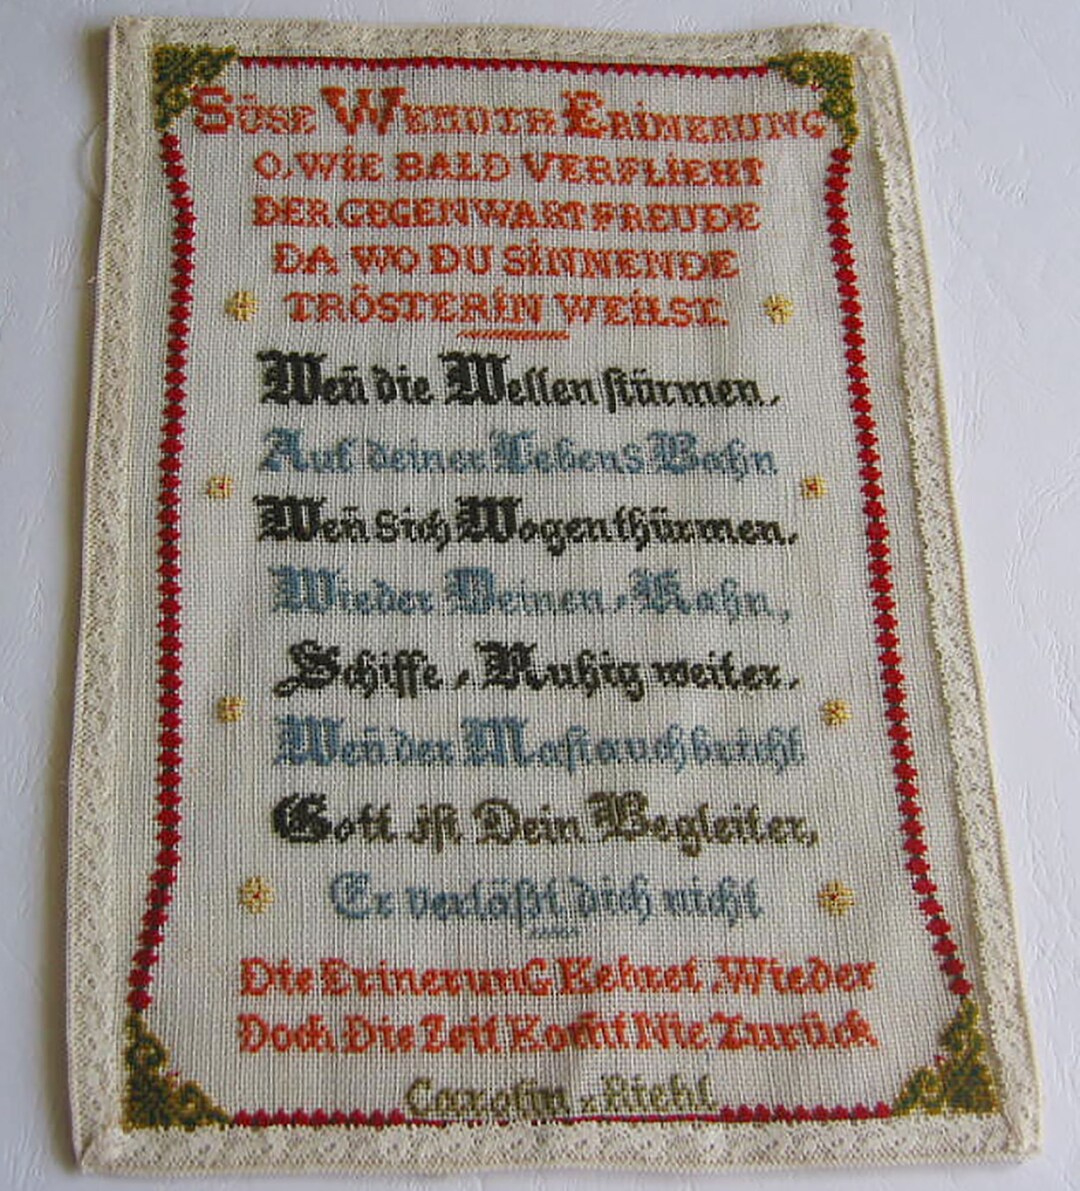 SÜSE WEHUTH ERINERUNG
O, WIE BALD VERFLIEHT
DER GEGENWART FREUDE
DA WO DU SINNENDE
TRÖSTERIN WEILST.
Weñ die Wellen stürmen,
Auf deiner Lebens Bahn
Weñ Sich Wogen thürmen,
Wieder Deinen, Kahn,
Schiffe, Ruhig weiter,
Weñ der Mast auch bricht
Gott ist Dein Begleiter,
Er verläßt dich nicht
Die Erinerung Kehret, Wieder
Doch Die Zeit Kom̄t Nie Zurück
Carolin, Riehl